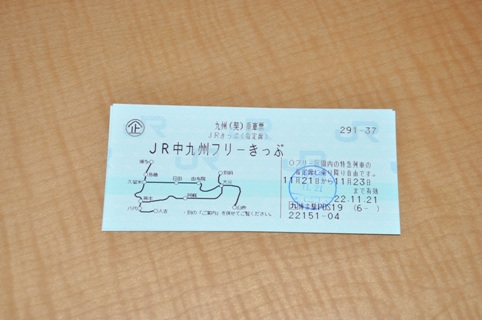 企
九州(契)乗車票
JRきっぷ(指定席)
291-37
JR中九州フリーきっぷ
○フリー区間内の特急列車の
指定席に乗り降り自由です。
11月21日から11月23日
まで有効
22.11.21
22151-04
博多
鳥栖
久留米
日田
由布院
別府
大分
熊本
阿蘇
八代
人吉
別の「ご案内」を併せてご覧ください。